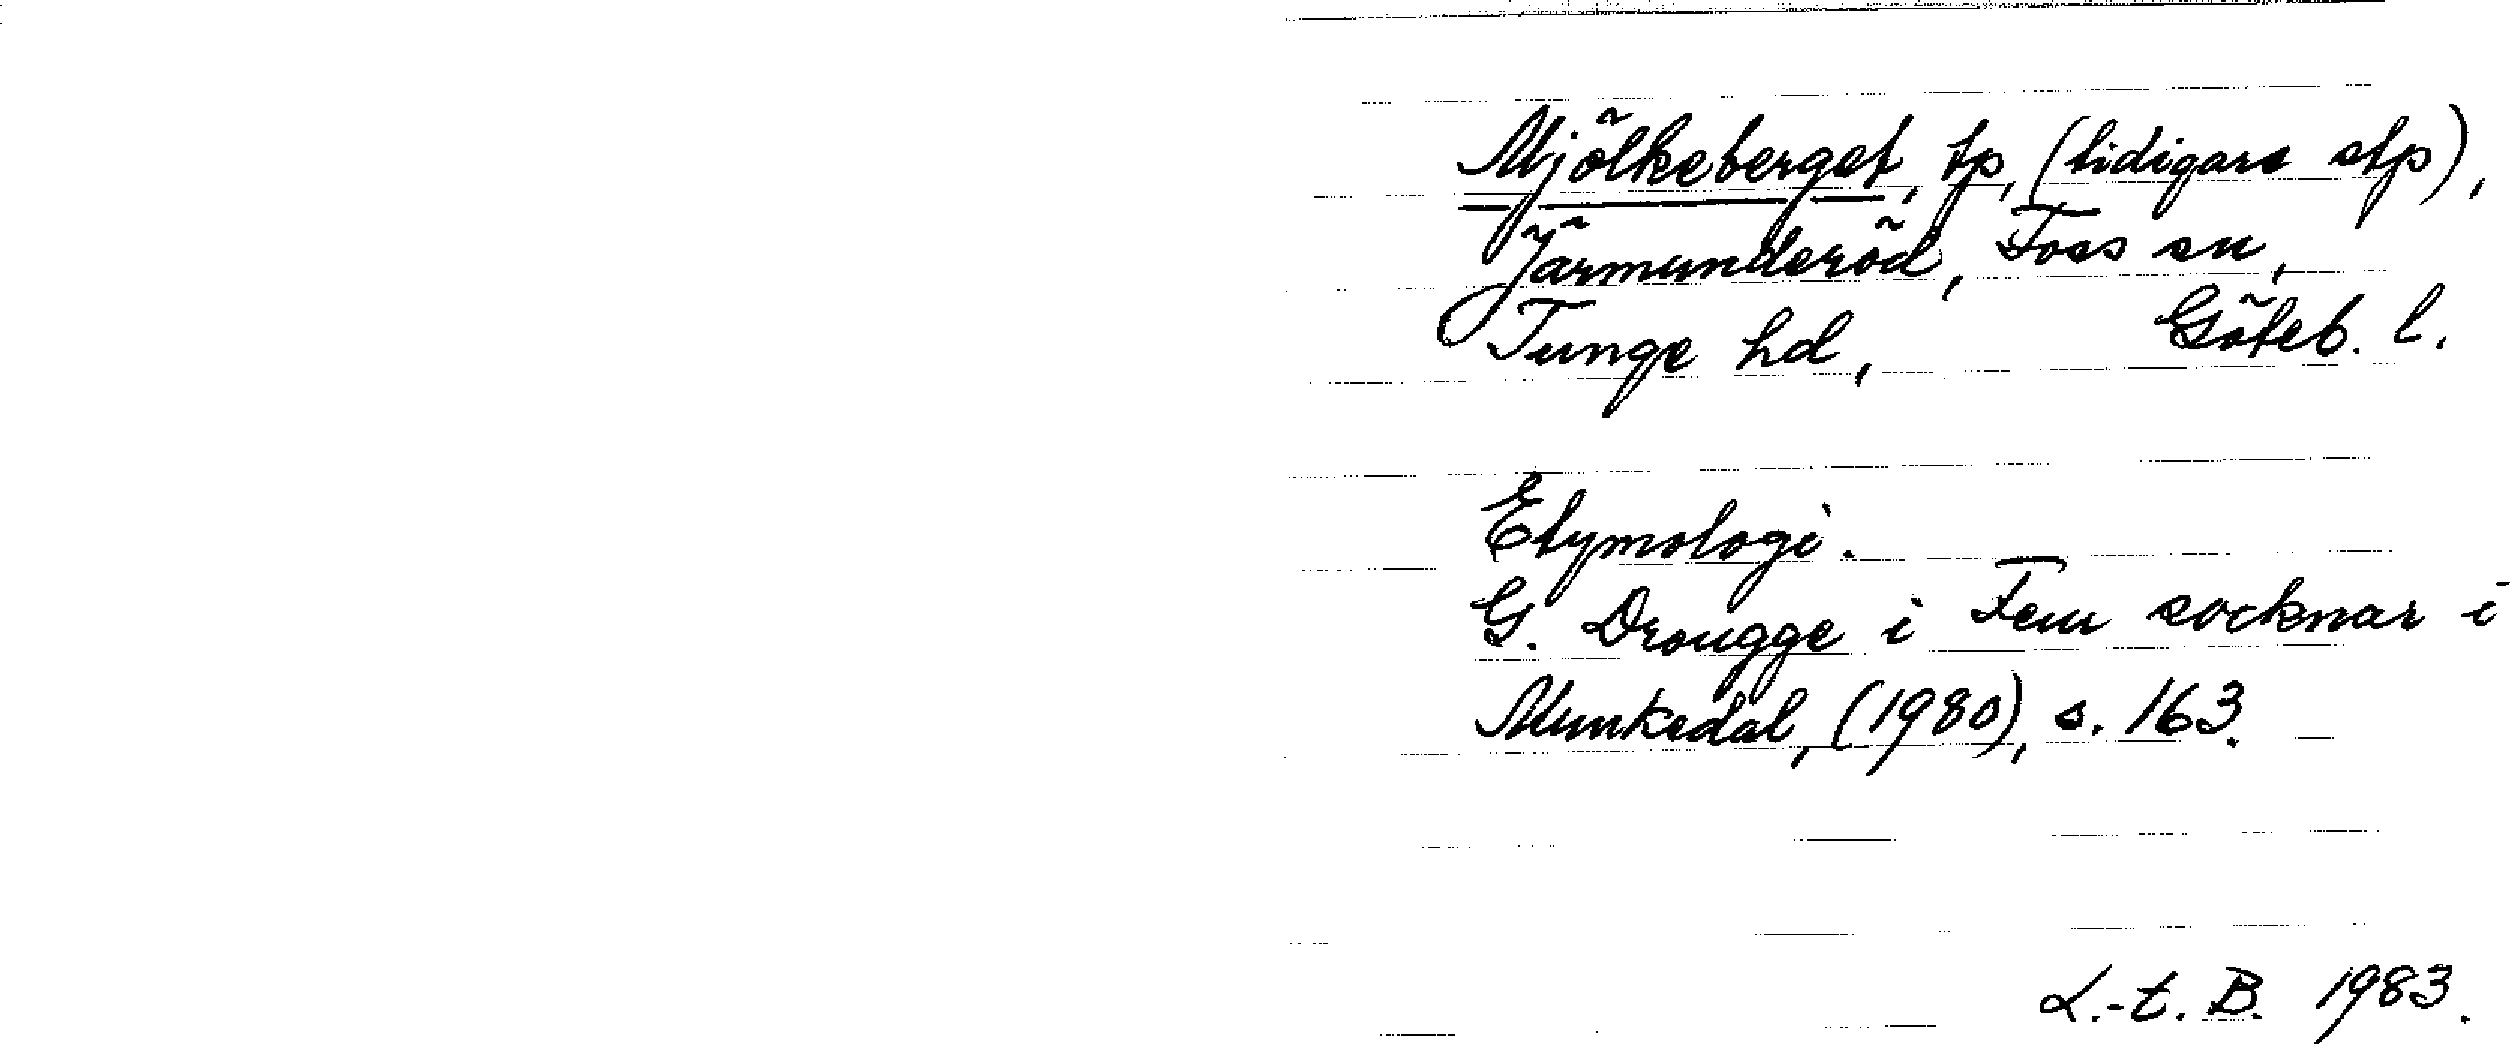 Mjölkeberget, tp, (tidigare stp),
Järmunderöd, Foss sn,
Tunge hd, Göteb. l.
Etymologi.
G. Drougge i Fem socknar i
Munkedal, (1980), s. 163.
L.-t. B. 1983.